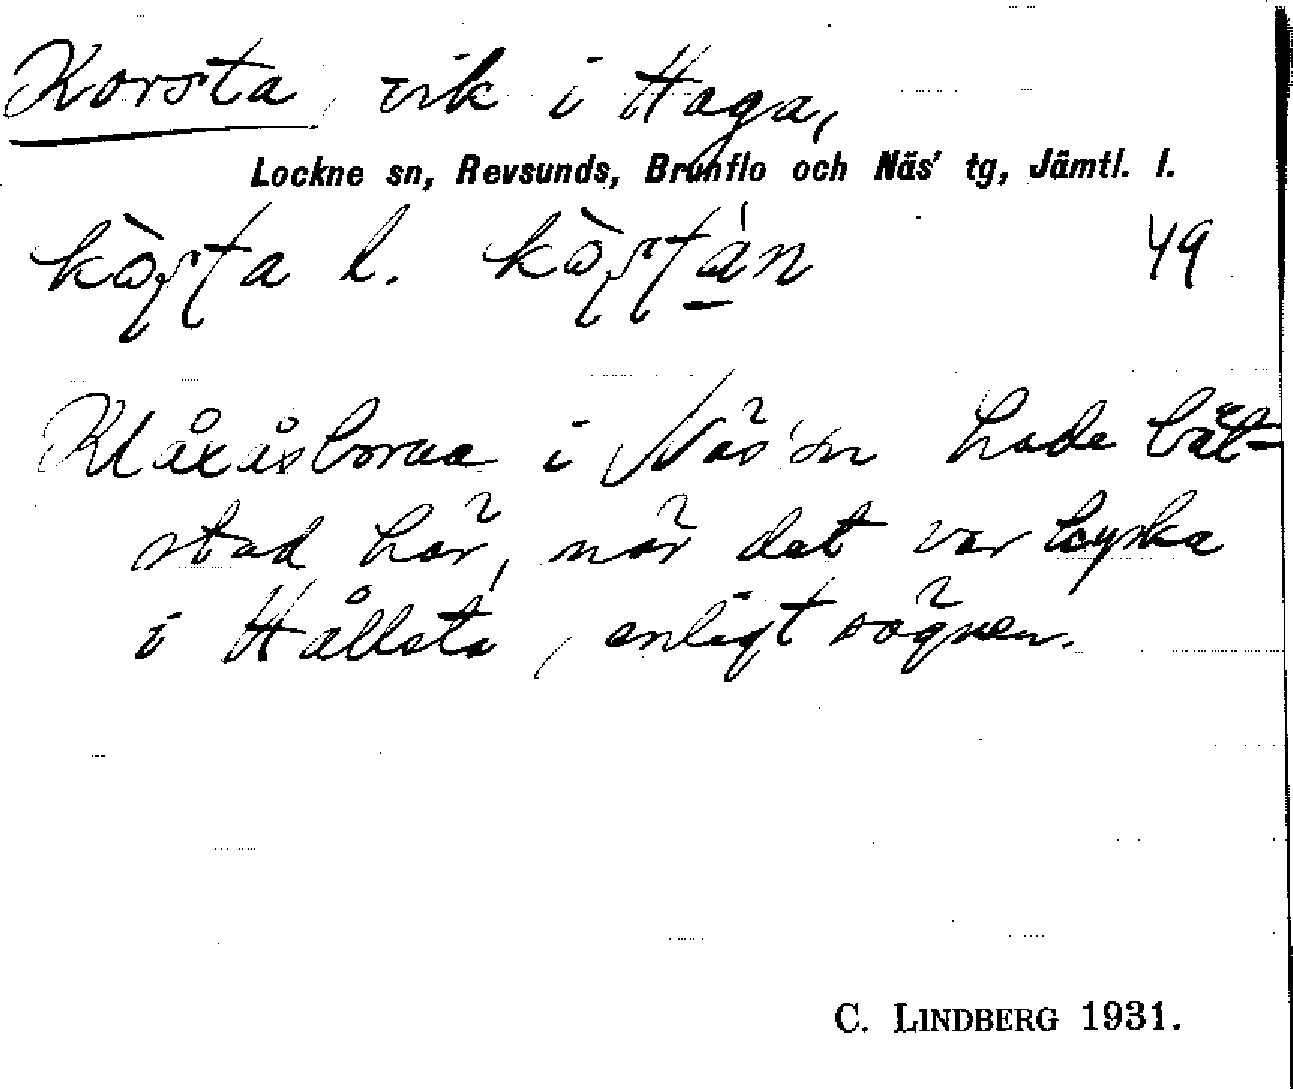 Korsta, vik i Haga,
Lockne sn, Revsunds, Brunflo och Näs' tg, Jämtl. l.
l. 49
Klåxåsborna i Näs sn hade båt-
stad här, när det var kyrka
i Hållsta, enligt sägnen.
C. LINDBERG 1931.